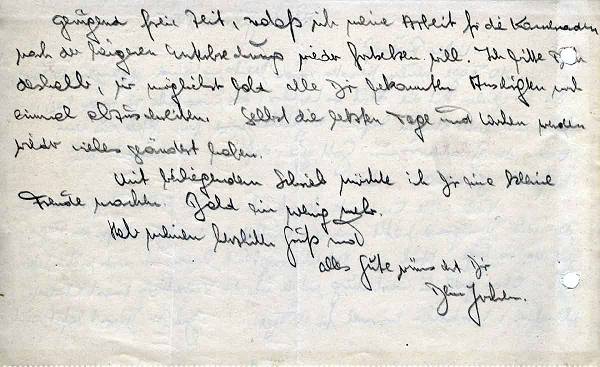 genügend freie Zeit, sodaß ich meine Arbeit für die Kameraden
nach der längeren Unterbrechung wieder fortsetzen will. Ich bitte Dich
deshalb, mir möglichst bald alle Dir bekannten Anschriften noch
einmal abzuschreiben. Selbst die letzten Tage und Wochen werden
wieder vieles geändert haben.
Mit beiliegendem Schrieb möchte ich Dir eine kleine
Freude machen. Bald ein wenig mehr.
Hab meinen herzlichen Gruß und
alles Gute wünscht Dir
Dein